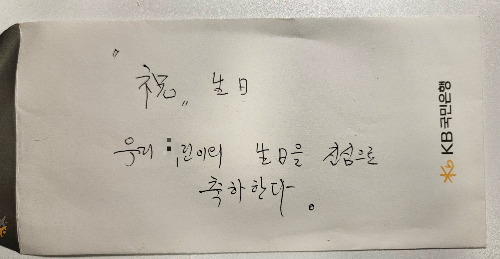 "祝" 生日
우리 린이의 生日을 진심으로
축하한다.
KB국민은행